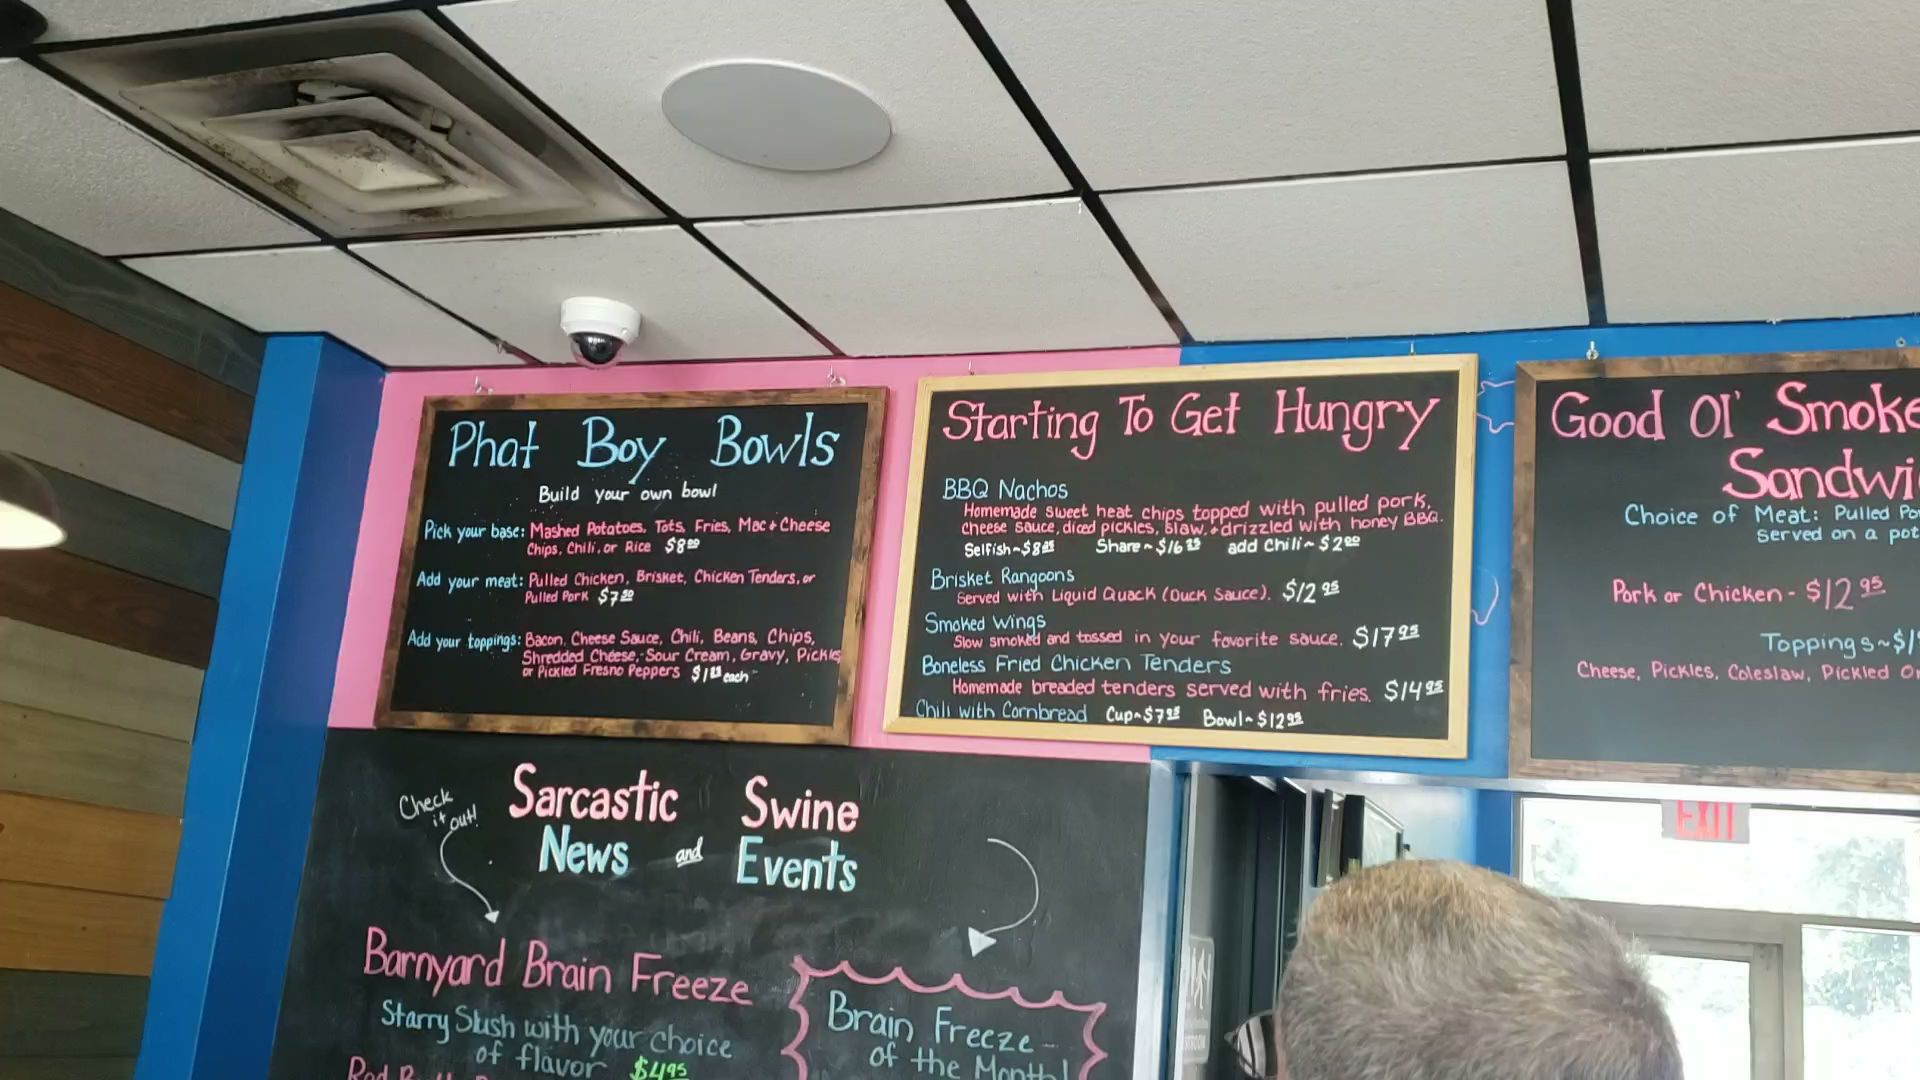 Phat Boy Bowls
Build your own bowl
Pick your base: Mashed Potatoes, Tots, Fries, Mac + Cheese
Chips, Chili, or Rice $8.00
Add your meat: Pulled Chicken, Brisket, Chicken Tenders, or
Pulled Pork $7.50
Add your toppings: Bacon, Cheese Sauce, Chili, Beans, Chips,
Shredded Cheese, Sour Cream, Gravy, Pickles
or Pickled Fresno Peppers each
Starting To Get Hungry
BBQ Nachos
Homemade sweet heat chips topped with pulled pork,
cheese sauce, diced pickles, slaw, + drizzled with honey BBQ.
Selfish~ Share~ add Chili~ $2.00
Brisket Rangoons
Served with Liquid Quack (Duck Sauce). $12.95
Smoked Wings
Slow smoked and tossed in your favorite sauce. $17.95
Boneless Fried Chicken Tenders
Homemade breaded tenders served with fries. $14.95
Chili with Cornbread Cup~$7.95 Bowl~$12.95
Good Ol' Smoke
Sandwi
Choice of Meat: Pulled Po
Served on a pot
Pork or Chicken - $12.95
Toppings~$1
Cheese, Pickles, Coleslaw, Pickled On
Check
it out!
Sarcastic Swine
News and Events
Barnyard Brain Freeze
Starry Slush with your choice
of flavor $4.95
Brain Freeze
of the Month!
EXIT